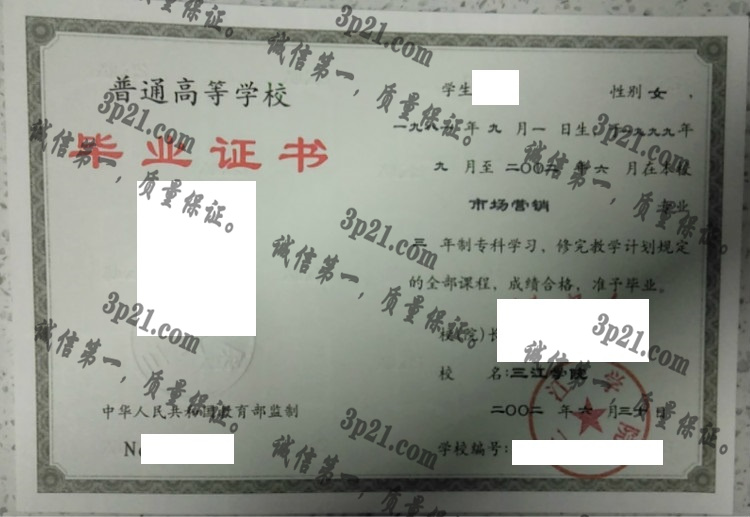 普通高等学校
毕业证书
中华人民共和国教育部监制
No
学生
性别 女 ，
一九八 年 九 月一 日生，于一九九九年
九 月至 二〇〇二 年 六 月在本校
市场营销 专业
三 年制专科学习、修完教学计划规定
的全部课程，成绩合格，准予毕业。
校(院)长
校 名:三江学院
二〇〇二 年 六 月三十日
学校编号:
3p21.com
诚信第一，质量保证。
3p21.com
诚信第一，质量保证。
3p21.com
诚信第一，质量保证。
3p21.com
诚信第一，质量保证。
3p21.com
诚信第一，质量保证。
3p21.com
诚信第一，质量保证。
3p21.com
诚信第一，质量保证。
3p21.com
诚信第一，质量保证。